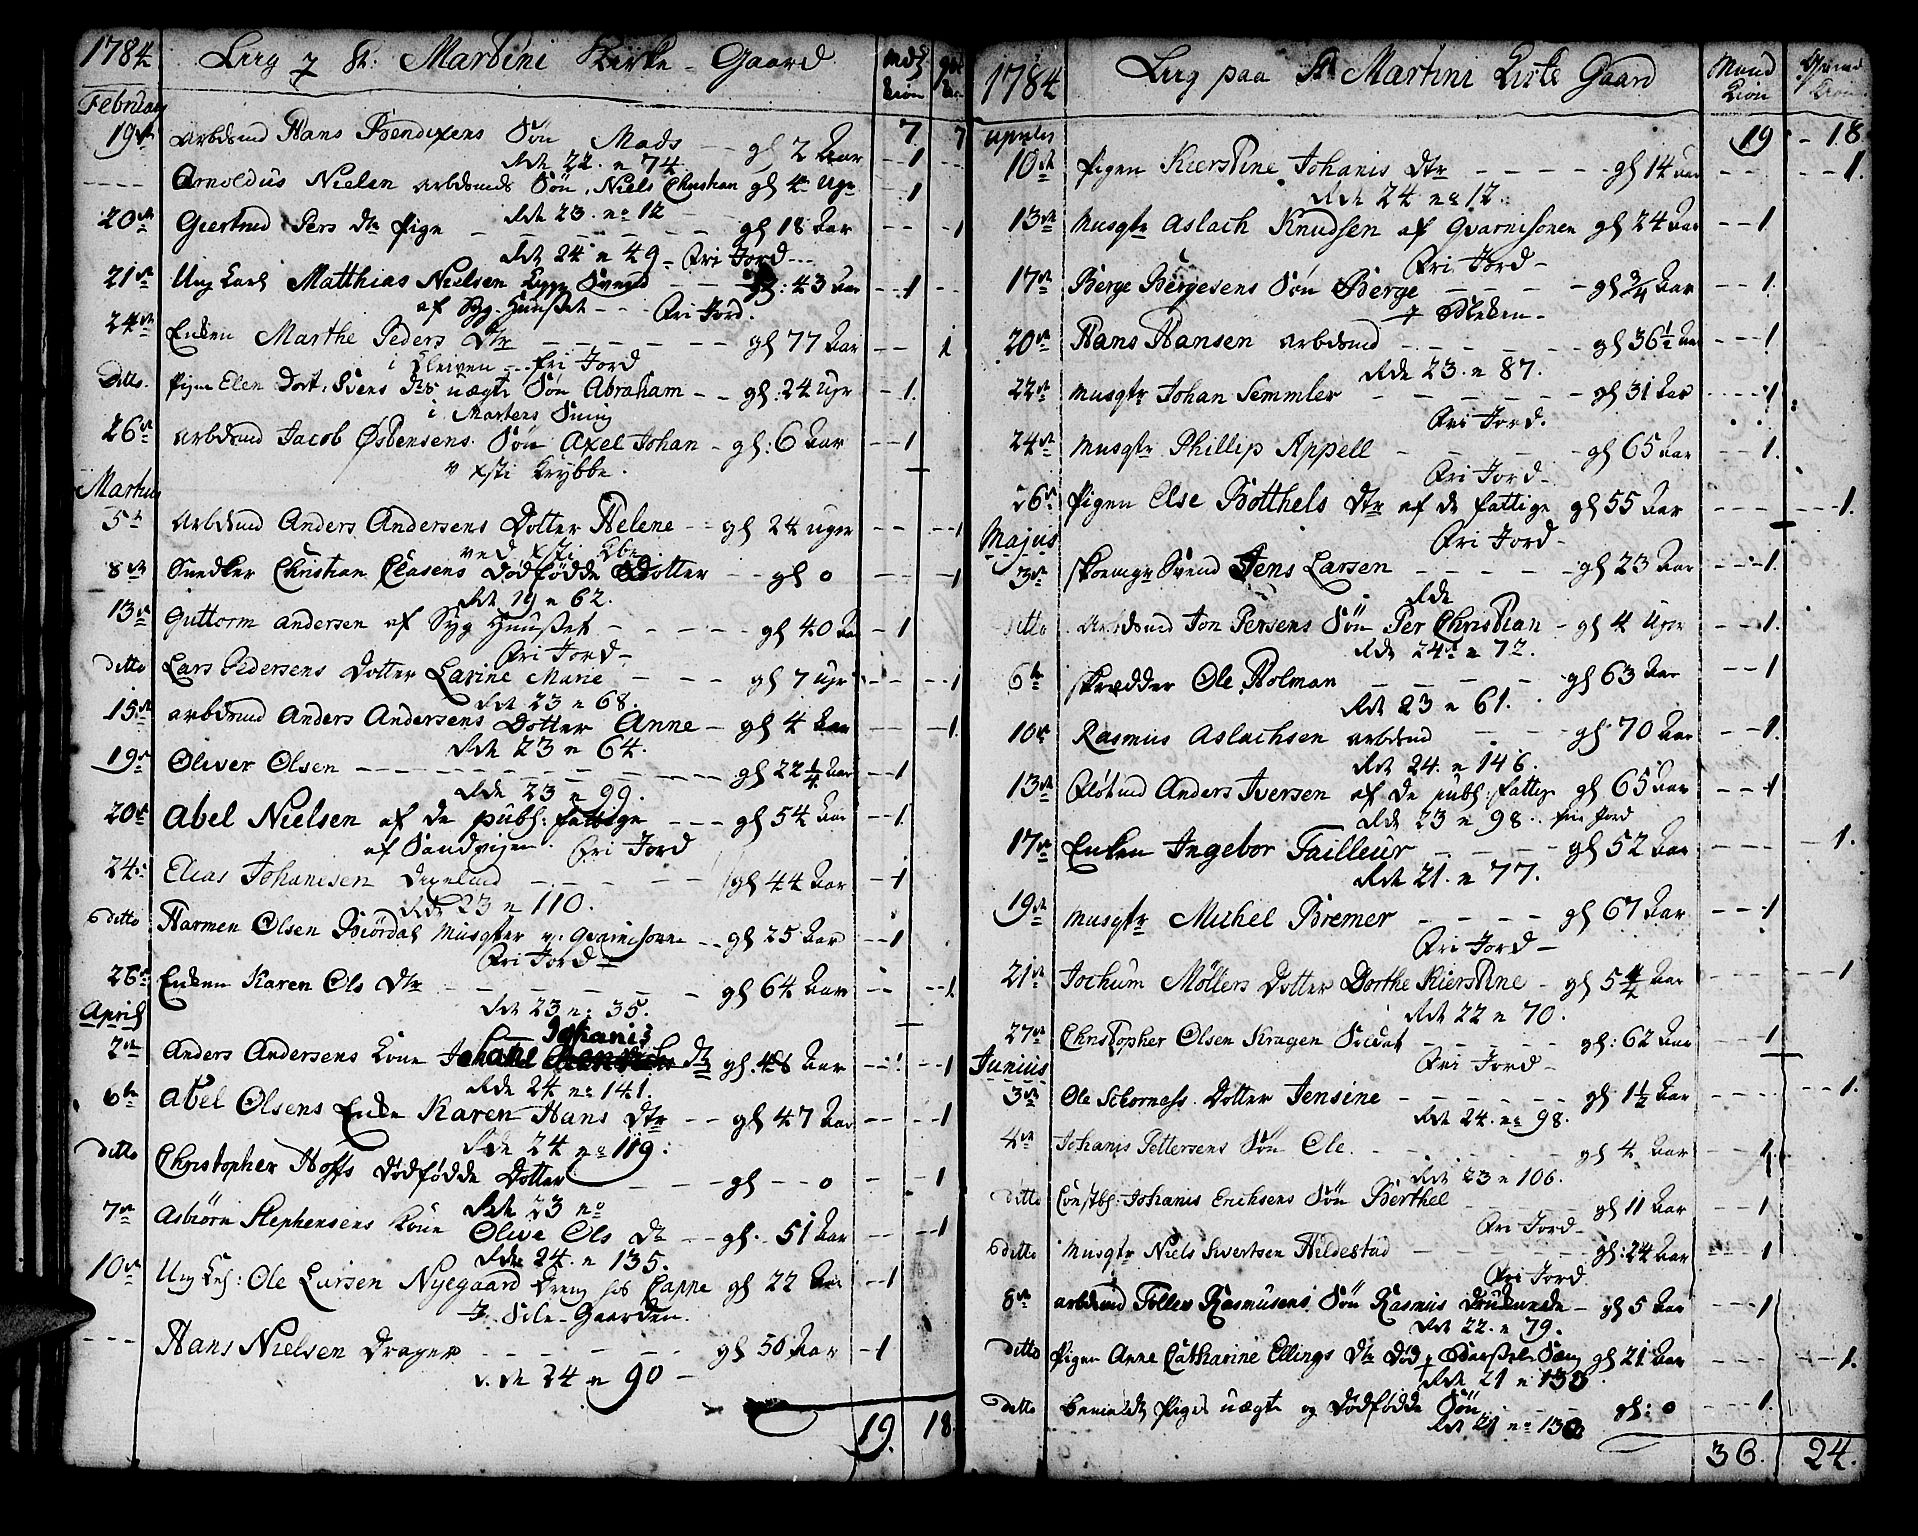 1784 Liig p St: Martini Kirke-Gaard
Mds Kiøn
Februarij
19de Arbdsmd Hans Bendixens Søn Mads - - gl 2 Aar 7 7
Rde 22. n 74 - - 1 - -
- - - - Arnoldus Nielsen Arbdsmds Søn, Niels Christian gl 4 Ugr - - 1
Rde 23. no 12
20de Geertrud Pers Dtr Pige - - - - gl 18 Aar - - - 1
Rde 24 n 49 - Fri Jord - -
21de Ung Karl Matthias Nielsen - - gl: 43 Aar - - 1 - -
af Syg. Huuset - - Fri Jord.
24de Enken Marthe Peders Dtr - - - - gl 77 Aar - - 1
i Kleiven - - Fri Jord
Ditto. Pigen Elen Dort. Svens Dtr uægte Søn Abraham - - gl: 24 Ugr - 1.
i Martens Smug
26de Arbdsmd Jacob Østensens Søn Axel Johan - gl: 6 Aar - - 1
v Xsti Krybbe.
Martius
5te Arbdsmd Anders Andersens Dotter Helene - - gl 24 Uger - - - - 1
ved Xsti Kbe.
8de Snedker Christian Clasens Dødfødde Dotter - - gl 0 - - - - 1
Rde 19 n 62.
13de Guttorm Andersen af Syg Huuset - - - - gl 40 Aar - 1
Fri Jord -
ditto Lars Pedersens Dotter Larine Marie - - - gl 7 Ugr - - - - 1
Rde 23 n 68.
15de Arbdsmd Anders Andersens Dotter Anne - gl 4 Aar - - - - 1.
Rde 23 n 64.
19de Oliver Olsen - - - - - - - - gl 22 1/4 Aar - - 1
Rde 23 n 99.
20de Abel Nielsen af de publ: fattige - - - gl 54 Aar - - 1.
af Sandvigen. Fri Jord
24de Elias Johanesen - - - - gl 44 Aar - - 1
Rde 23 n 110.
ditto Harmen Olsen Biørdal Musqter v. Gvarnisonne - - gl 25 Aar - - 1
Fri Jord -
26de Enken Karen Ols Dtr - - - - - - gl 64 Aar - - - - 1
Rde 23 n: 35.
April
Johanis
2den Anders Andersens Kone Dtr gl. 48 Aar - - - - 1
Rde 24 no 141.
6te Abel Olsens Enke Karen Hans Dtr - - gl 47 Aar - - - - 1
Rde 24 no 119:
ditto Christopher Hoffs Dødfødde Dotter - - - gl - - 0 - - - 1
Rde 23 no
7de Asbiørn Stephensens Kone Olive Ols Dtr - - gl. - 51 Aar - - - - 1
Rde 24. n 135.
10de Ung Krl: Ole Larsen Nyegaard Dreng hos Cappe gl 22 Aar - - 1
I Sile-Gaarden.
- - - Hans Nielsen Drager - - - - - - gl 56 Aar - 1
Rde 24 n 90 -
19. 18.
1784 Liig paa St Martini Kirke Gaard Mand Kiøn Qvind Kiøn
Apriles 19 - 18.
10de Pigen Kierstine Johanis Dtr - - - - - gl 14 Aar - - - - - 1.
Rde 24 no 12.
13de Musqtr Aslach Knudsen af Gvarnisonen gl 24 Aar - - - 1
Fri Jord -
17de Berge Bergesens Søn Berge - - - - - gl 3/4 Aar - - 1.
20de Hans Hansen Arbdsmd - - - - - gl 36 1/2 Aar - - - 1
Rde 23. n 87.
22de Musqtr Johan Semmler - - - - - gl 31 Aar - - - - 1
Fri Jord.
24de Musqtr Phillip Appell - - - gl 65 Aar - - - 1.
Fri Jord -
26de Pigen Else Botthels Dtr af de fattige gl 55 Aar - - - - - - 1.
Fri Jord -
Majus
3de Skoemgr Svend Jens Larsen - - - - - gl 23 Aar - - - 1.
Rde
ditto Arbdsmd Jon Persens Søn Per Christian - gl 4 Ugr - - 1.
Rde 24 n 72.
6te Skrædder Ole Holman - - - - - gl 63 Aar - - 1
Rde 23 n 61.
10de Rasmus Aslachsen Arbdsmd - - - gl 70 Aar - - - 1.
Rde 24. n 146.
13de Flötmd Anders Iversen af de publ: fattige gl 65 Aar - - - 1
Rde 23 n 98. Fri Jord
17de Enken Ingebor Tailleur - - - - gl 52 Aar - - - - 1.
Rde 21. n 77.
19de Musqtr Michel Bremer - - - - gl 67 Aar - - - 1
Fri Jord -
21de Jochum Möllers Dotter Dorthe Kierstine - gl 5 Aar - - - - - - 1
Rde 22 n 70.
27de Christopher Olsen Kragen Soldat - - - - gl: 62 Aar - - - 1
Fri Jord -
Junius
3de Ole Schorness. Dotter Jensine - - - - - gl 1 1/2 Aar - - - - - - 1.
Rde 24. no 98.
4de Johanis Pettersens Søn Ole. - - - - - gl 4 Aar - - - 1
Rde 23 n 106.
ditto Constbl: Johanis Erichsens Søn Berthel - - - - gl 11 Aar - - - 1
Fri Jord -
ditto Musqtr Niels Sivertsen Hildestad - - - gl: 24 Aar - - - 1
Fri Jord
8de Arbdsmd Toller Rasmusens Søn Rasmus Druknede - gl 5 Aar - - - 1
Rde 22. n 79.
ditto Pigen Anne Catharine Ellings Dtr Død p Barsel Sæng gl 21 Aar - - - - - - 1.
Rde 21 n 130.
ditto Bemeldte Piges uægte og Dødfødde Søn - - - gl: 0 - - - 1.
Rde 21 no 130
36. 24.